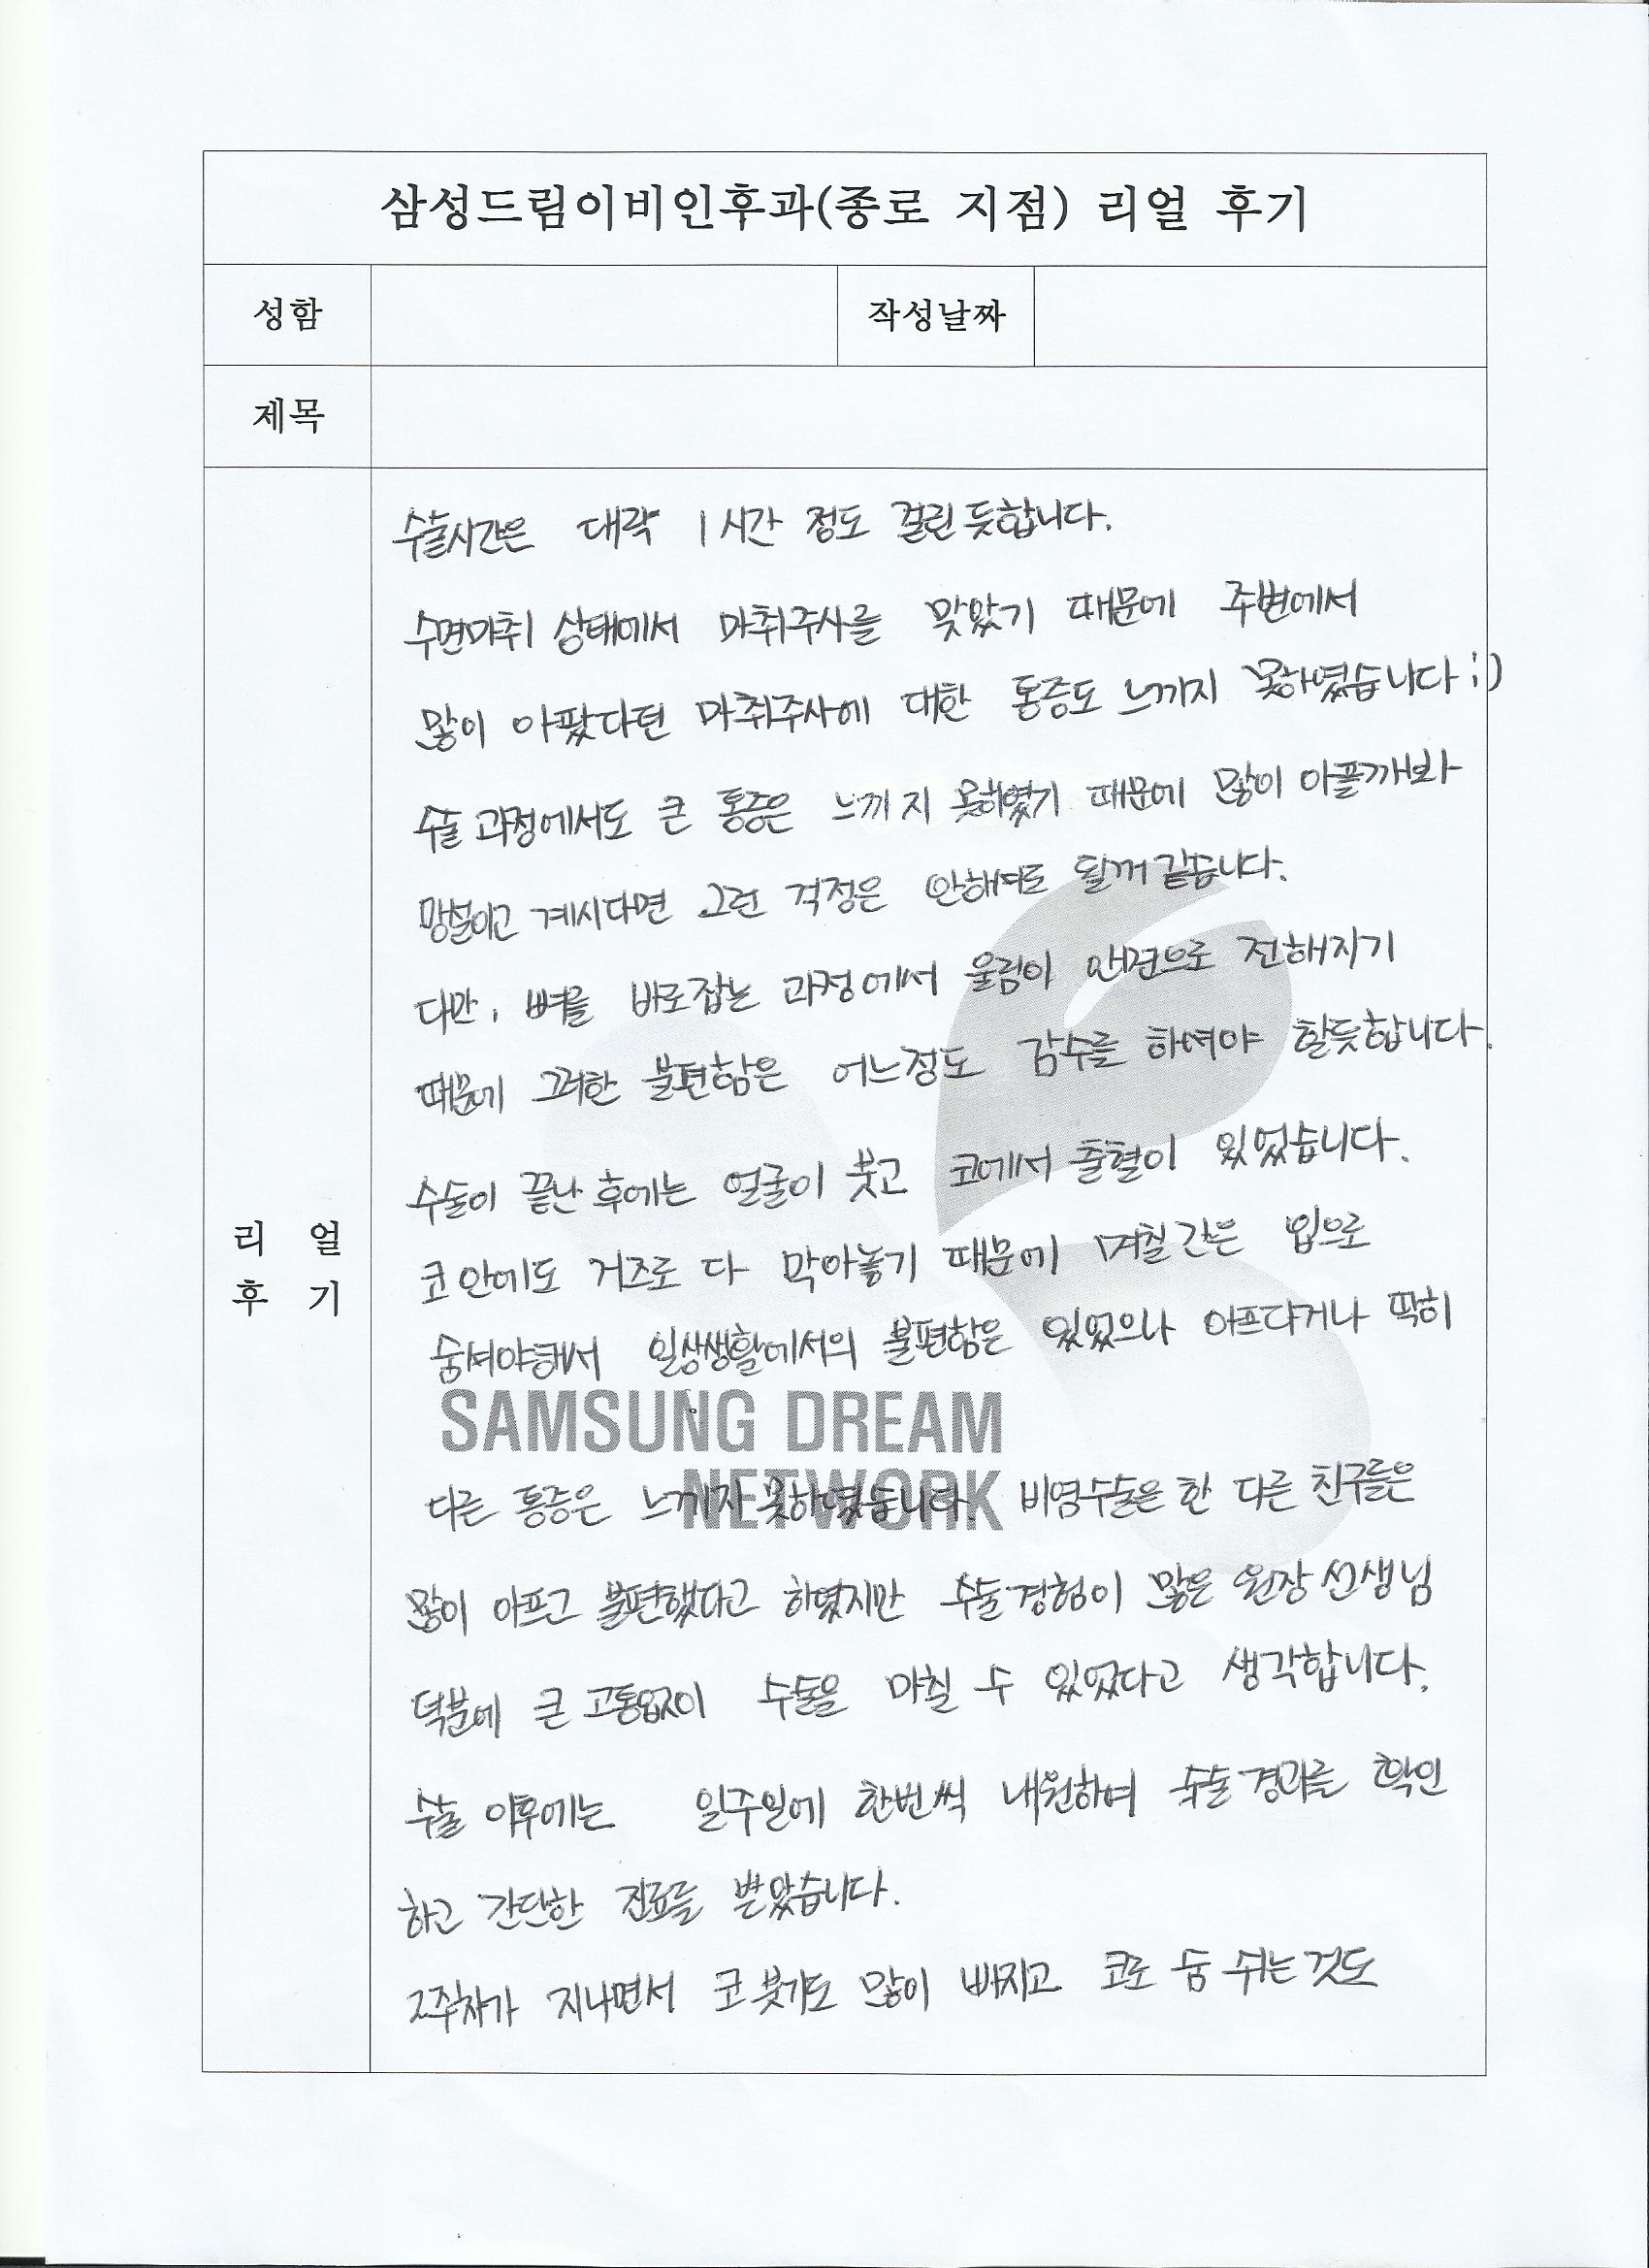 삼성드림이비인후과(종로 지점) 리얼 후기
성함 작성날짜
제목
수술시간은 대략 1시간 정도 걸린듯합니다.
수면마취 상태에서 마취주사를 맞았기 때문에 주변에서
많이 아팠다던 마취주사에 대한 통증도 느끼지 못하였습니다 :)
수술 과정에서도 큰 통증은 느끼지 못하였기 때문에 많이 아플까봐
망설이고 계시다면 그런 걱정은 안해여도 될꺼같습니다.
다만, 뼈를 바로잡는 과정에서 울림이 안면으로 전해지기
때문에 그러한 불편함은 어느정도 감수를 하셔야 할듯합니다.
수술이 끝난 후에는 얼굴이 붓고 코에서 출혈이 있었습니다.
리 얼
후 기
코안에도 거즈로 다 막아놓기 때문에 며칠간은 입으로
숨셔야해서 일상생활에서의 불편함은 있었으나 아프다거나 딱히
SAMSUNG DREAM
NETWORK
다른 통증은 느끼지 못하였습니다. 비염수술은 한 다른 친구들은
많이 아프고 불편했다고 하였지만 수술경험이 많은 원장선생님
덕분에 큰 고통없이 수술을 마칠 수 있었다고 생각합니다.
수술 이후에는 일주일에 한번씩 내원하여 수술경과를 확인
하고 간단한 진료를 받았습니다.
2주차가 지나면서 코 붓기도 많이 빠지고 코로 숨 쉬는것도